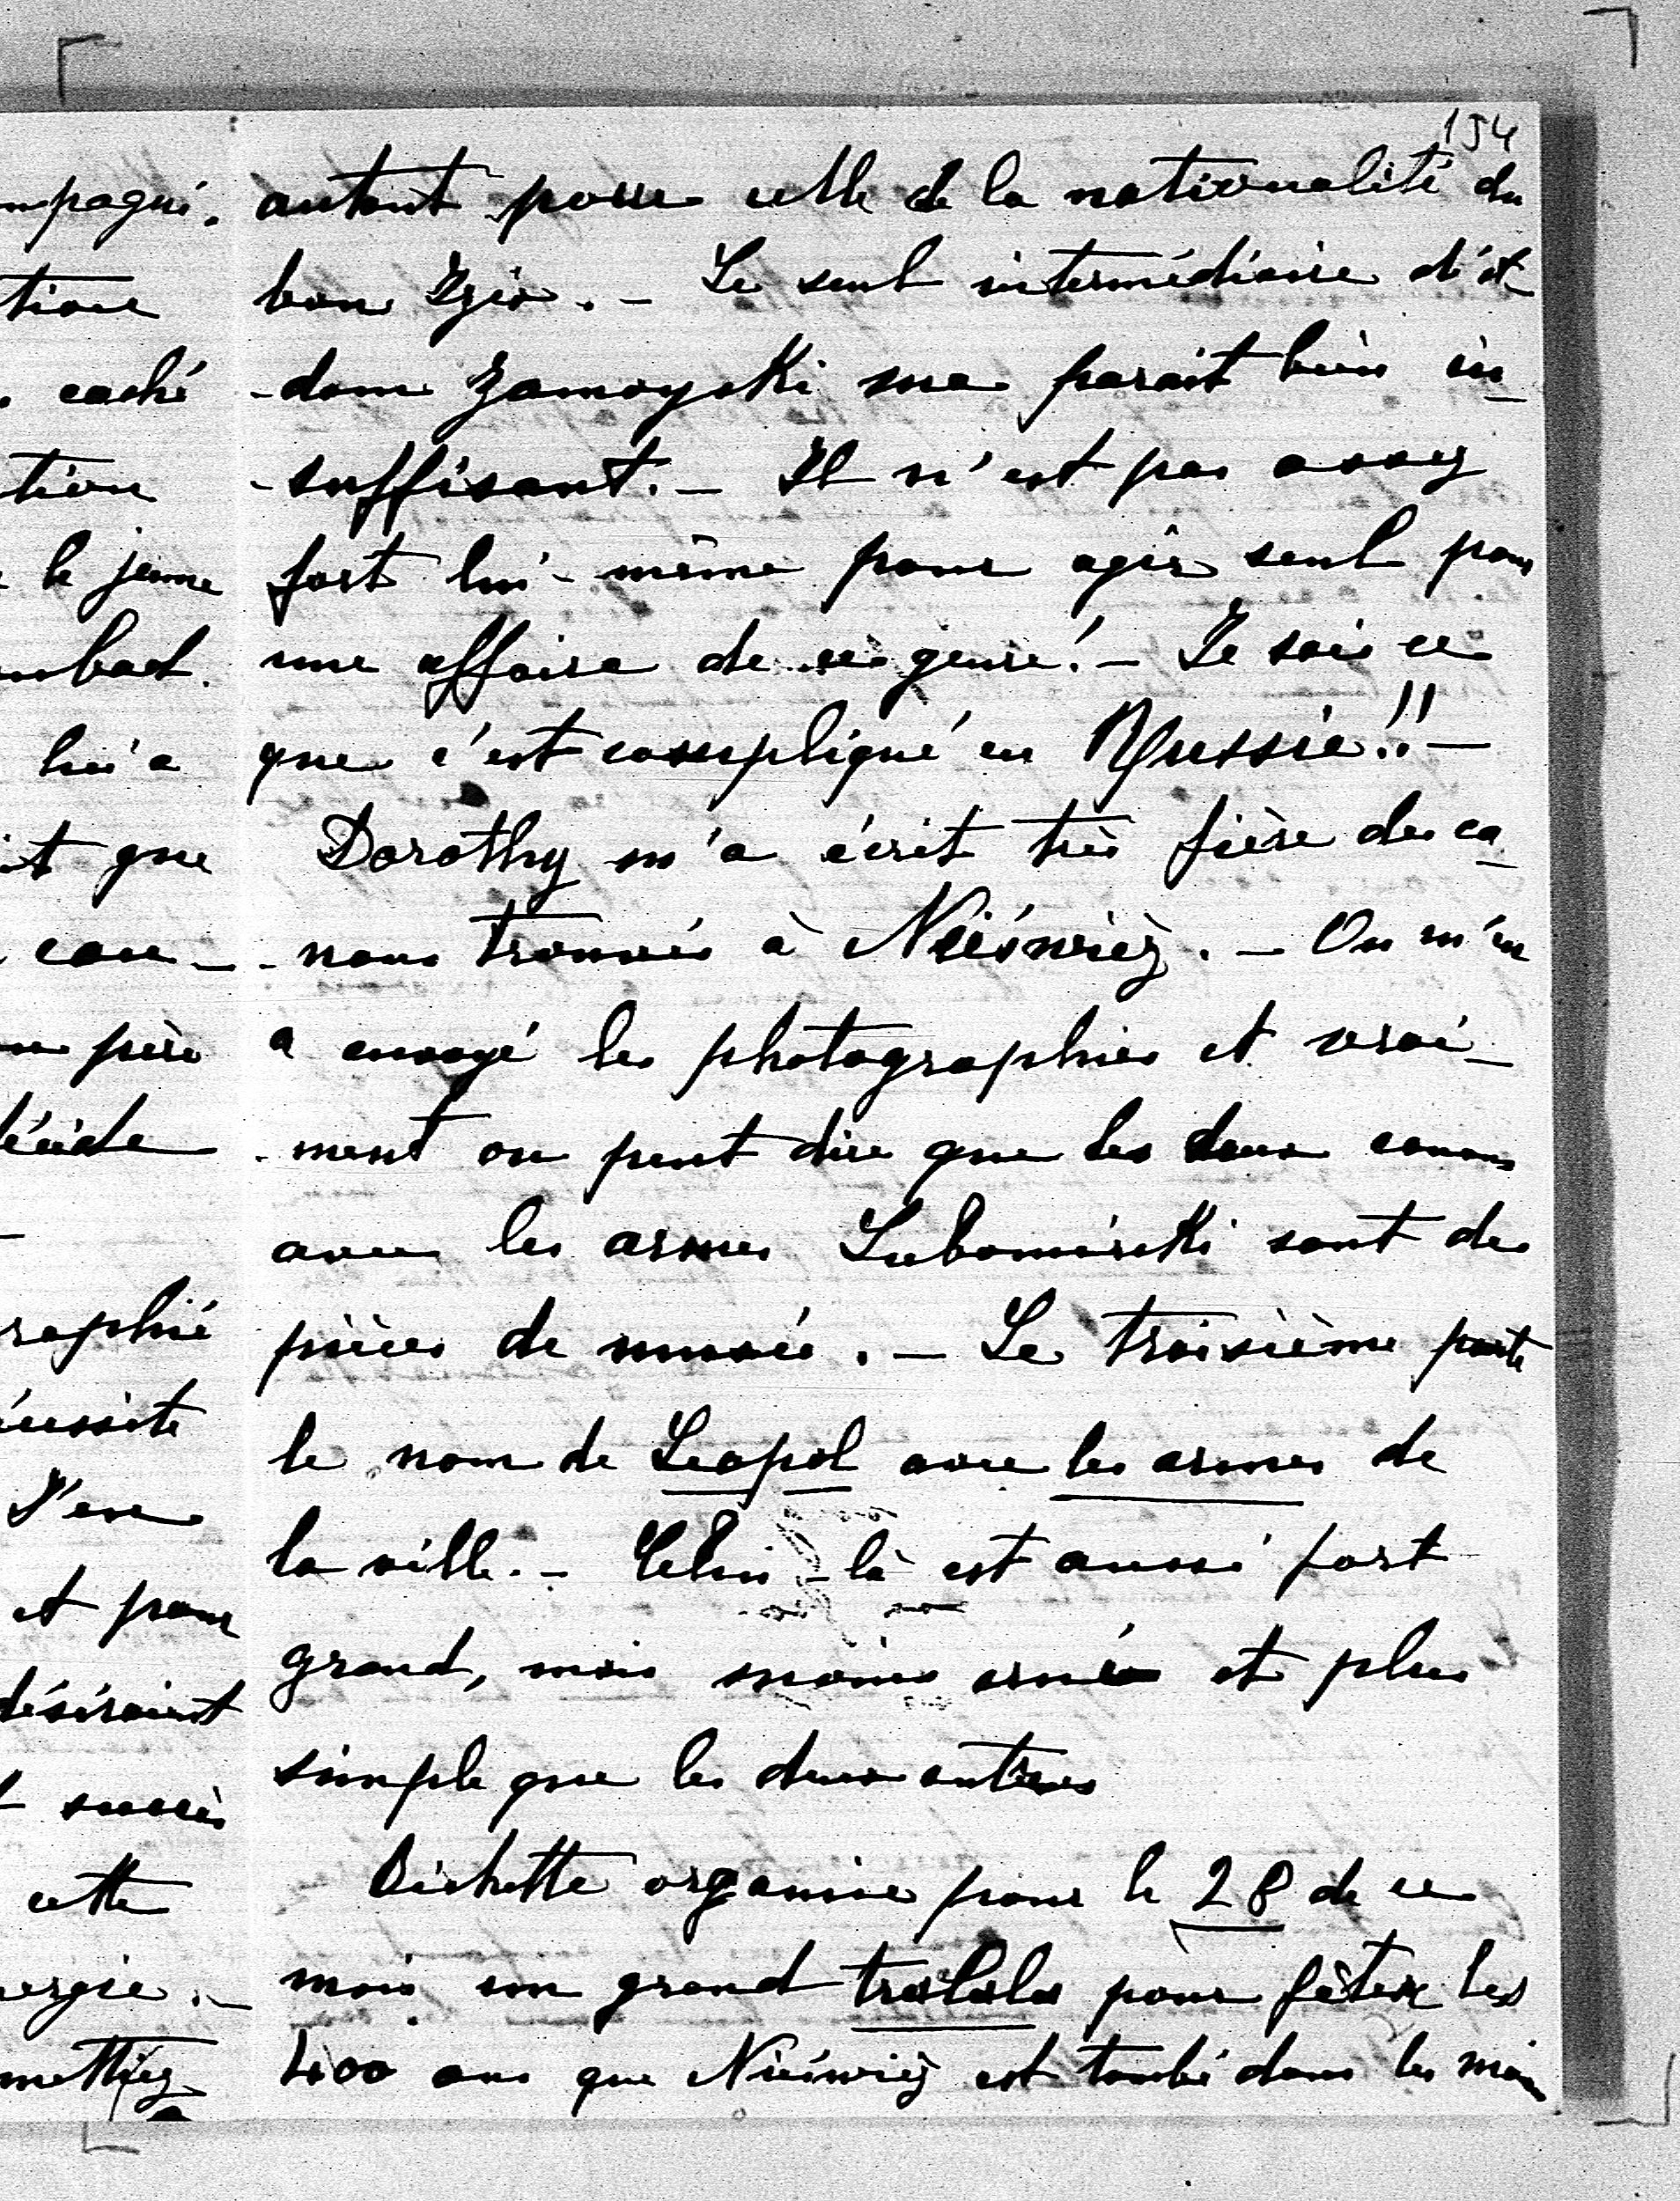 154
autant pour celle de la nationalité du
bon Izio. — Le seul intermédiaire d'A-
-dam Zamoyski me parait bien in-
-suffisant. — Il n'est pas assez
fort lui-même pour agir seul pour
une affaire de ce genre! — Je sais ce
que c'est compliqué en Russie!! —
Dorothy m'a écrit très fière des ca-
-nons trouvés à Nieśwież. — On m'en
a envoyé les photographies et vrai-
-ment on peut dire que les deux canons
avec les armes Lubomirski sont des
pièces de musée. — Le troisième porte
le nom de Leopol avec les armes de
la ville. — Celui-là est aussi fort
grand, mais moins orné et plus
simple que les deux autres
Bichette organise pour le 28 de ce
mois un grand tralala pour fêter les
400 ans que Nieśwież est tombé dans les mains
mpagné.
tion
caché
tion
le jeune
lui a
it que
con-
père
décide
raphié
éussite
J'en
et pour
désiraient
succès
cette
ergie. —
mettiez